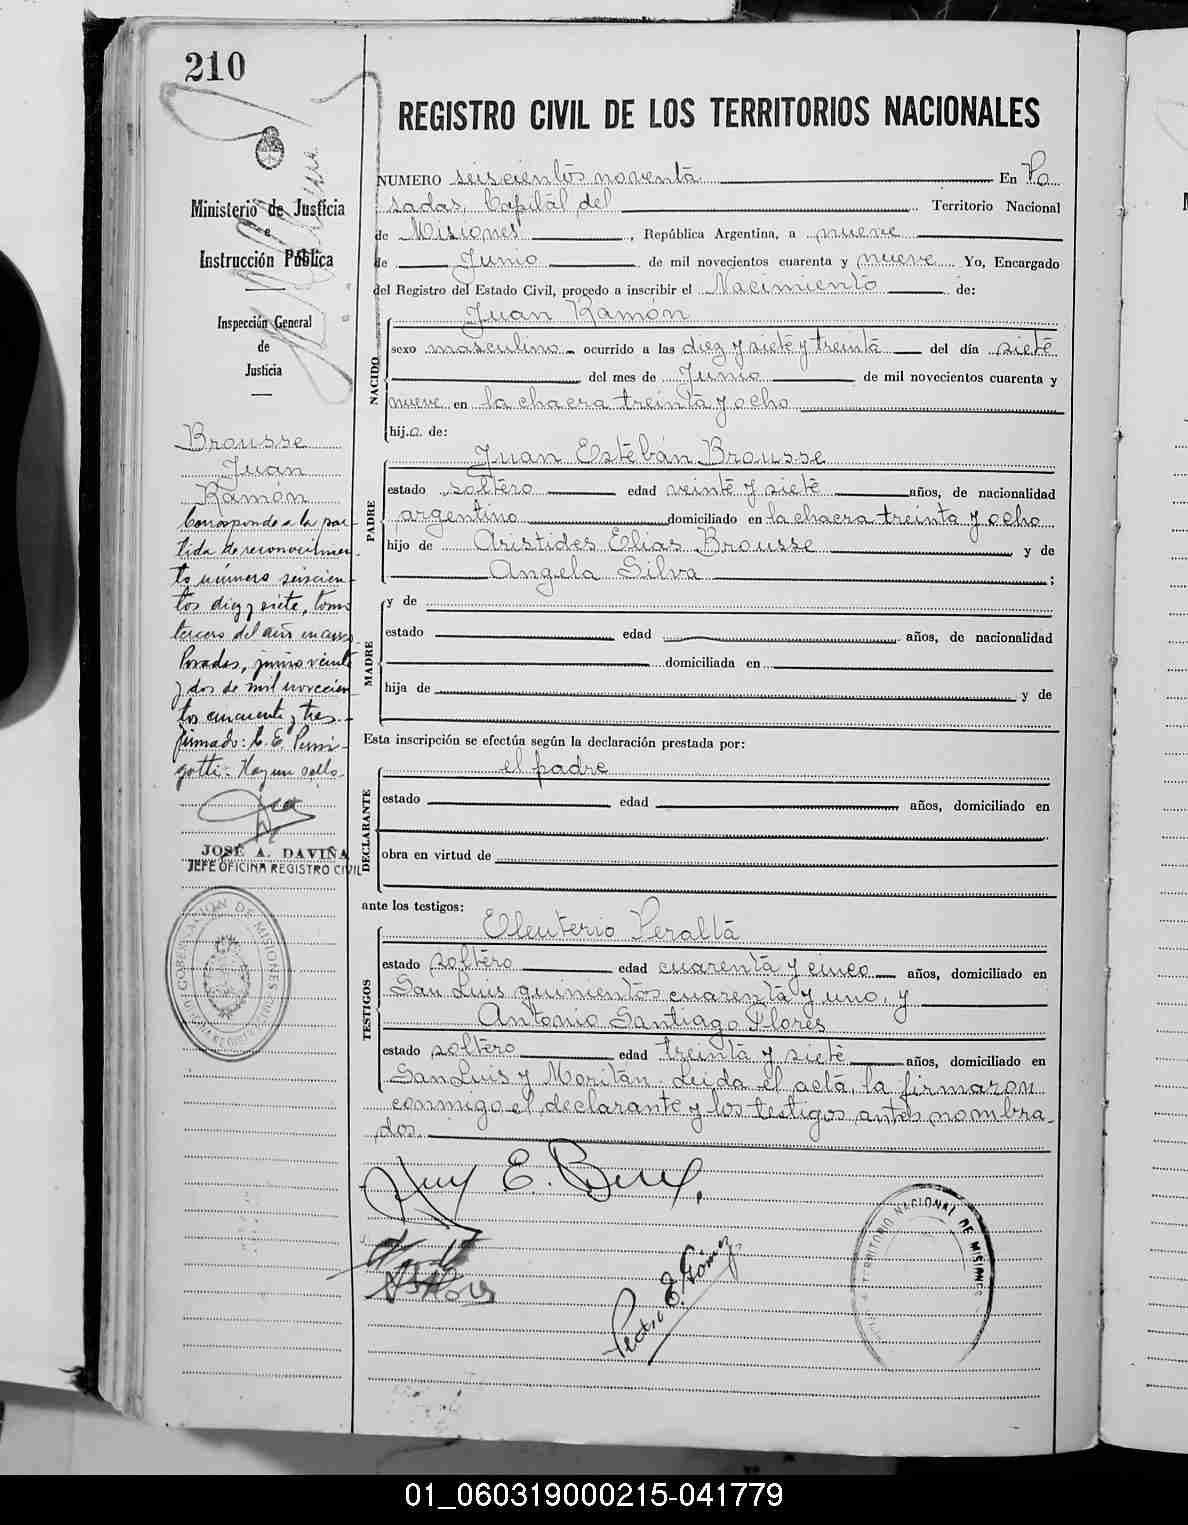 210
Ministerio de Justicia
e
Instrucción Pública
Inspección General
de
Justicia
Brousse
Juan
Ramón
Corresponde a la par-
tida de reconocimien-
to número seiscien-
tos diez y siete, tomo
tercero del año en curso
Posadas, junio veinte
y dos de mil novecien-
tos cincuenta y tres.-
firmado: C. E. Perni-
gotti.- Hay un sello
JOSÉ A. DAVIÑA
JEFE OFICINA REGISTRO CIVIL
GOBERNACION DE MISIONES
REGISTRO CIVIL DE LOS TERRITORIOS NACIONALES
NUMERO seiscientos noventa En Po
sadas, Capital del Territorio Nacional
de Misiones, República Argentina, a nueve
de Junio de mil novecientos cuarenta y nueve Yo, Encargado
del Registro del Estado Civil, procedo a inscribir el Nacimiento de:
NACIDO
Juan Ramón
sexo masculino ocurrido a las diez y siete y treinta del día siete
del mes de Junio de mil novecientos cuarenta y
nueve en la chacra treinta y ocho
hij.o. de:
PADRE
Juan Esteban Brousse
estado soltero edad veinte y siete años, de nacionalidad
argentino domiciliado en la chacra treinta y ocho
hijo de Aristides Elias Brousse y de
Angela Silva ;
MADRE
y de
estado edad años, de nacionalidad
domiciliada en
hija de y de
Esta inscripción se efectúa según la declaración prestada por:
DECLARANTE
el padre
estado edad años, domiciliado en
obra en virtud de
ante los testigos:
TESTIGOS
Eleuterio Peralta
estado soltero edad cuarenta y cinco años, domiciliado en
San Luis quinientos cuarenta y uno, y
Antonio Santiago Flores
estado soltero edad treinta y siete años, domiciliado en
San Luis y Moritán. Leida el acta, la firmaron
conmigo el declarante y los testigos antes nombra-
dos.
Pedro E. Gómez
TERRITORIO NACIONAL DE MISIONES
01_060319000215-041779